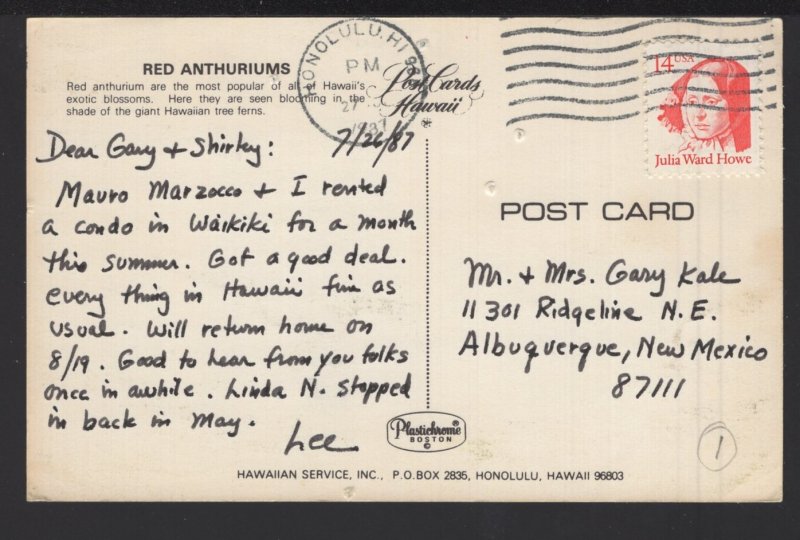 RED ANTHURIUMS
Red anthurium are the most popular of all of Hawaii's
exotic blossoms. Here they are seen blooming in the
shade of the giant Hawaiian tree ferns.
HONOLULU, HI
PM
27
1987
Post Cards
Hawaii
14 USA
Julia Ward Howe
7/26/87
Dear Gary + Shirley:
Mauro Marzocco + I rented
a condo in Waikiki for a month
this summer. Got a good deal.
every thing in Hawaii fun as
usual. Will return home on
8/19. Good to hear from you folks
once in awhile. Linda N. stopped
in back in May.
Lee
POST CARD
Mr. + Mrs. Gary Kale
11301 Ridgeline N.E.
Albuquerque, New Mexico
87111
Plastichrome
BOSTON
©
1
HAWAIIAN SERVICE, INC., P.O. BOX 2835, HONOLULU, HAWAII 96803